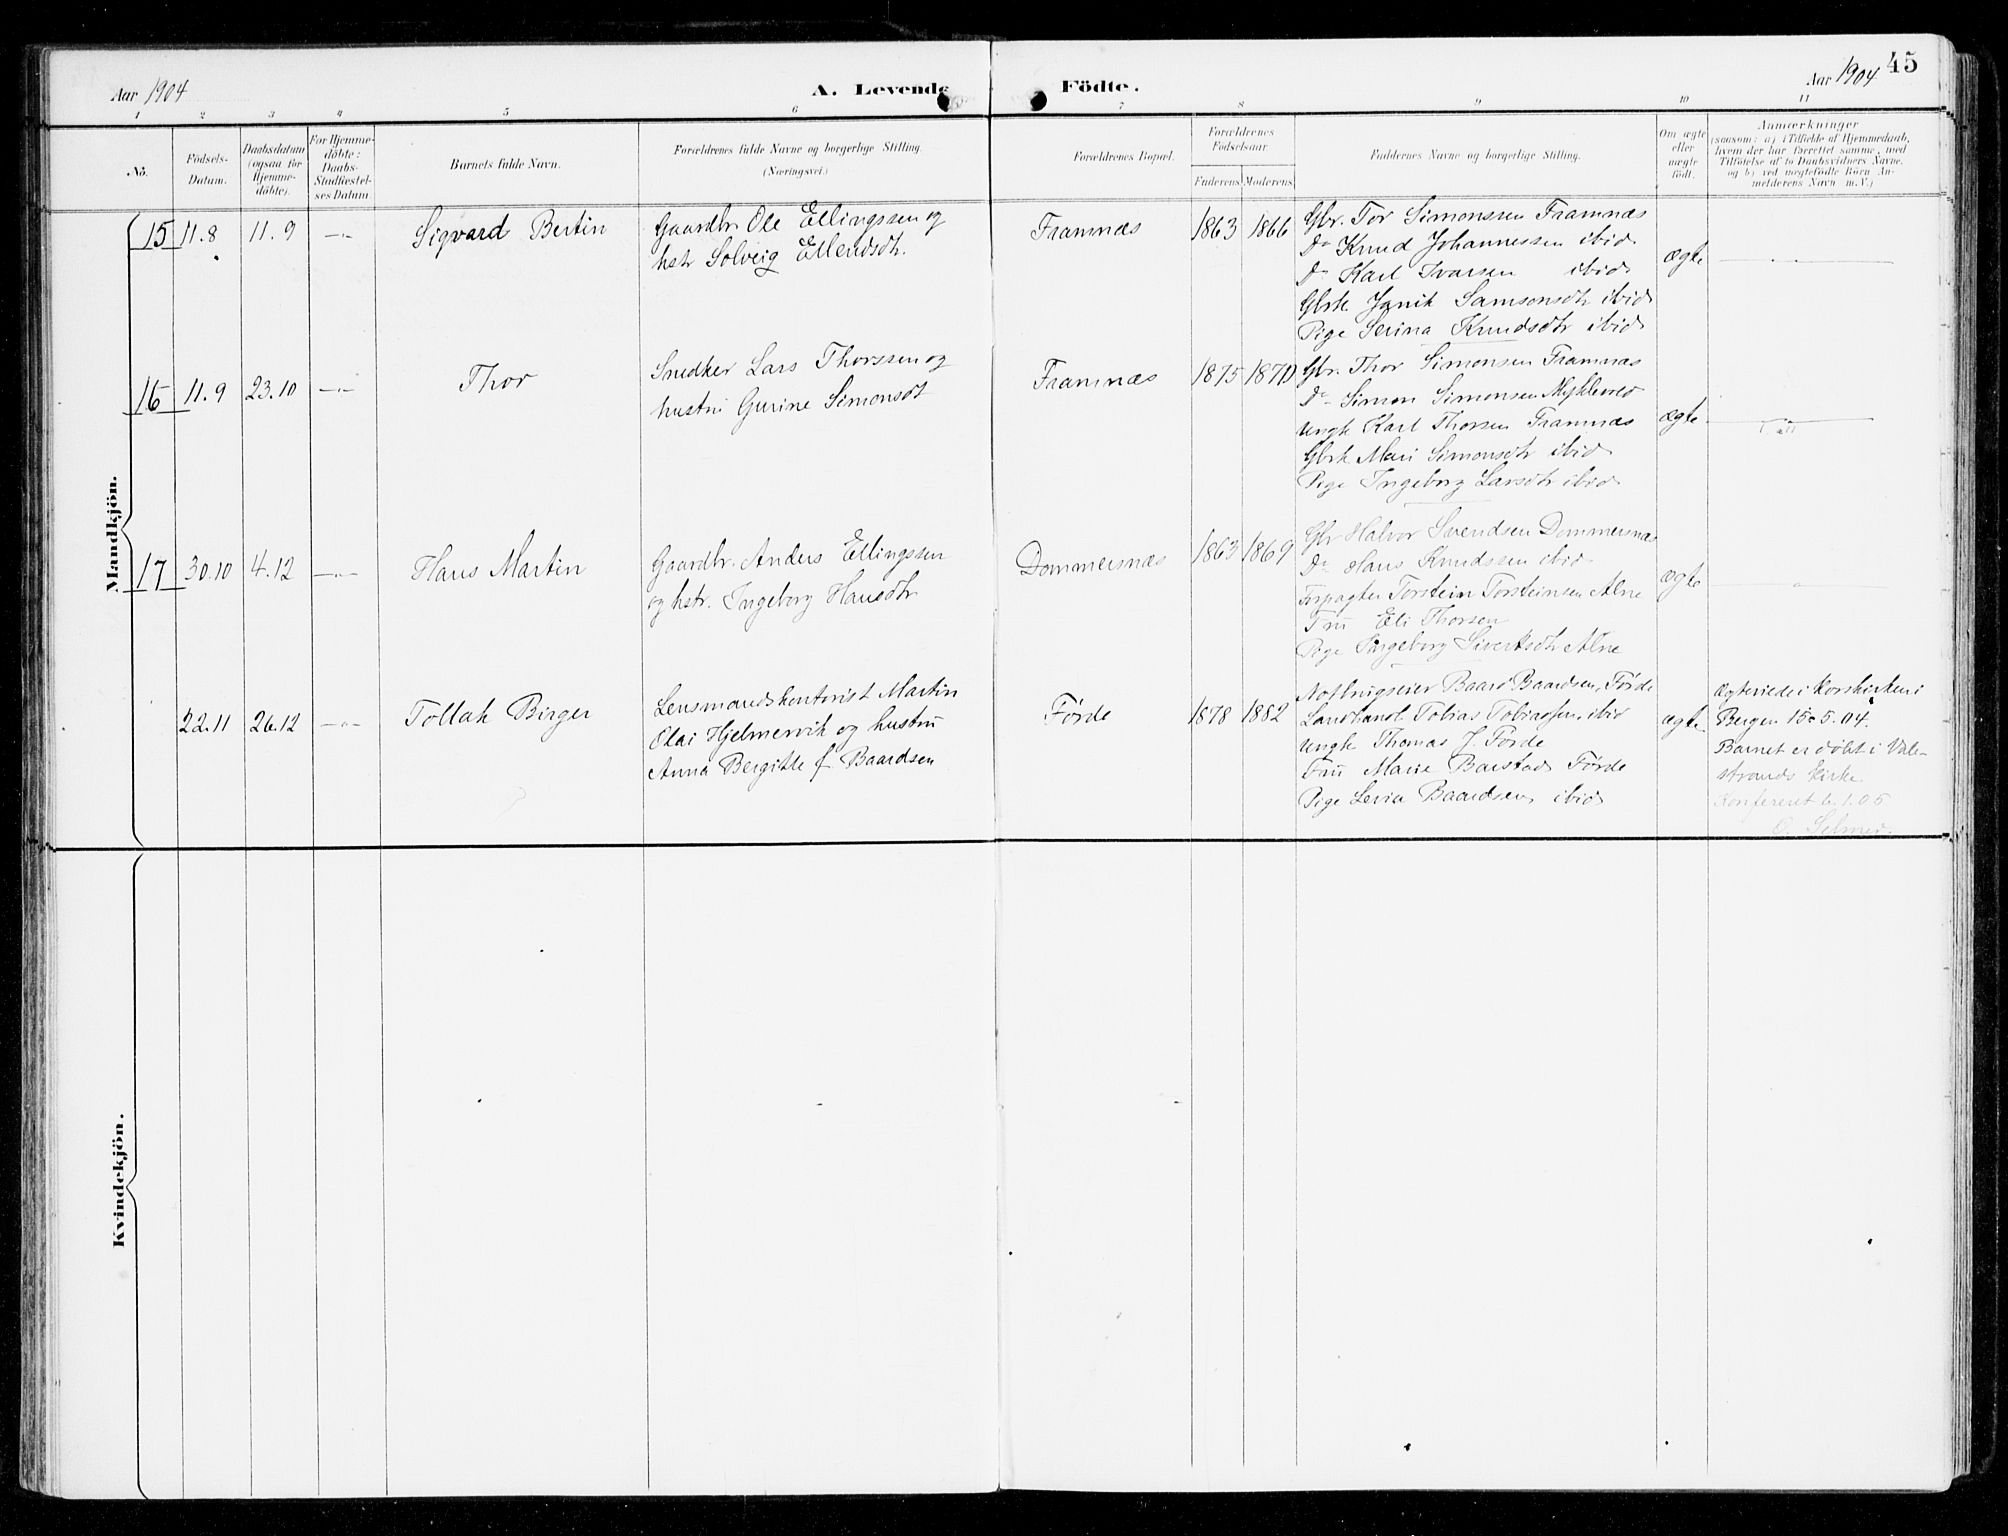 45
Aar 1904
A. Levende Födte.
Aar 1904
1 2 3 4 5 6 7 8 9 10 11
No.
Födsels-Datum.
Daabsdatum (ogsaa for Hjemme-döbte).
For Hjemme-döbte: Daabs-Stadfæstel-ses Datum.
Barnets fulde Navn.
Forældrenes fulde Navne og borgerlige Stilling.
(Næringsvei.)
Forældrenes Bopæl.
Forældrenes Födselsaar.
Faderens Moderens
Faddernes Navne og borgerlige Stilling.
Om ægte eller uægte födt.
Anmærkninger
(saasom: a) i Tilfælde af Hjemmedaab,
hvem der har forrettet samme, med
Tilföielse af to Daabsvidners Navne.
og b) ved uægtefödte Börn An-
melderens Navn m. V.)
Mandkjön.
15 11.8 11.9 Sigvard Bertin
Gaardbr. Ole Ellingssen og
hstr Solveig Ellendsdtr.
Framnæs 1863 1866
Gbr. Tor Simonssen Framnæs
Do Knud Johannessen ibid
Do Karl Ivarsen ibid
Gbrk Samsonsdtr ibid
Pige Serina Knudsdtr ibid
ægte
16 11.9 23.10 Thor
Snedker Lars Thorssen og
hustru Gurine Simonsdt
Framnæs 1875 1870
Gbr. Thor Simonsen Framnæs
Do Simon Simonsen
Ungk Karl Thorsen Framnæs
Gbrk Mari Simonsdtr ibid
Pige Ingeborg Larsdtr ibid
ægte
17 30.10 4.12 Hans Martin
Gaardbr. Anders Ellingssen
og hstr. Ingeborg Hansdtr
Dommersnæs 1863 1869
Gbr Halvor Svendsen Dommersnæs
Do Hans Knudssen ibid
Forpagter Torstein Torsteinsen Alne
Fru Eli Thorsen
Pige Ingeborg Sivertsdtr Alne
ægte
22.11 26.12 Tollak Birger
Lensmandskontorist Martin
Olai Hjelmervik og hustru
Anna Bergitte f. Baardsen
Førde 1878 1882
Baard Baardsen, Førde
Landhandl. Tobias Tobiassen, ibid
Ungk Thomas J. Førde
Fru Marie Barstad Førde
Pige Baardsen ibid
ægte
Ægteviede i Korskirken i
Bergen 15-5.04.
Barnet er døbt i Vale-
strands kirke
Konfereret 1.05
Selmer
Kvindekjön.